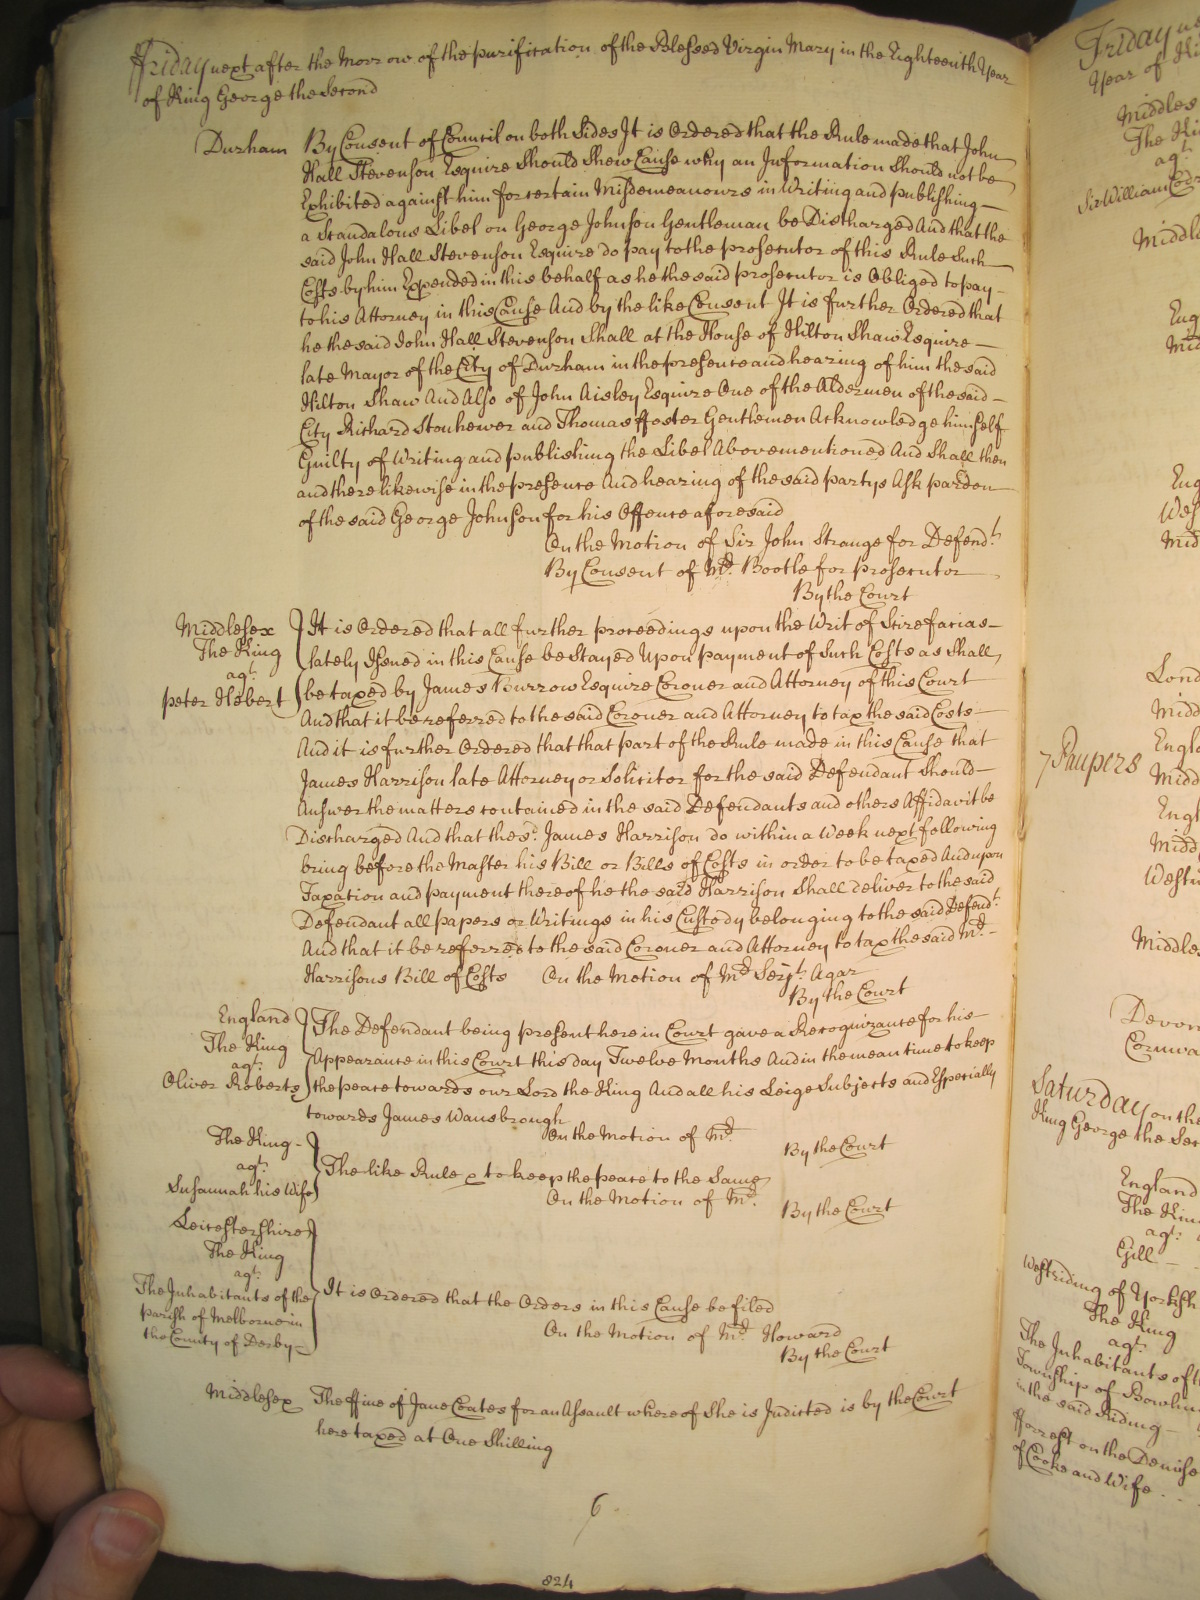 Friday next after the Morrow of the purification of the Blessed Virgin Mary in the Eighteenth Year
of King George the Second
Durham By Consent of Council on both Sides It is Ordered that the Rule made that John
Hall Stevenson Esquire Should Shew Cause why an Information Should not be
Exhibited against him for certain Misdemeanours in Writing and publishing
a Scandalous Libel on George Johnson Gentleman be Discharged And that the
said John Hall Stevenson Esquire do pay to the prosecutor of this Rule Such
Costs by him Expended in this behalf as he the said prosecutor is Obliged to pay
to his Attorney in this Cause And by the like Consent It is further Ordered that
he the said John Hall Stevenson Shall at the House of Hilton Shaw Esquire
late Mayor of the City of Durham in the presence and hearing of him the said
Hilton Shaw And Also of John Aisley Esquire One of the Aldermen of the said
City Richard Stonhewer and Thomas ffoster Gentlemen Acknowledge himself
Guilty of Writing and publishing the Libel Abovementioned And Shall then
and there likewise in the presence And hearing of the said partys Ask pardon
of the said George Johnson for his Offence aforesaid
On the Motion of Sir John Strange for Defend.t
By Consent of Mr. Bootle for prosecutor
By the Court
Middlesex It is Ordered that all further proceedings upon the Writ of Scire facias
The King lately Issued in this Cause be Stayed Upon payment of Such Costs as Shall
agt.
peter Hebert be taxed by James Burrow Esquire Coroner and Attorney of this Court
And that it be referred to the said Coroner and Attorney to tax the said Costs
And it is further Ordered that that part of the Rule made in this Cause that
James Harrison late Attorney or Solicitor for the said Defendant Should
Answer the matters contained in the said Defendants and others Affidavit be
Discharged And that the s.d James Harrison do within a Week next following
bring before the Master his Bill or Bills of Costs in order to be taxed And upon
Taxation and payment thereof he the said Harrison Shall deliver to the said
Defendant all papers or Writings in his Custody belonging to the said Defend.t
And that it be referred to the said Coroner and Attorney to tax the said Mr.
Harrisons Bill of Costs On the Motion of Mr. Serjt. Agar
By the Court
England The Defendant being present here in Court gave a Recognizance for his
The King
agt. Appearance in this Court this day Twelve Months And in the mean time to keep
Oliver Roberts the peace towards our Lord the King And all his Leige Subjects and Especially
towards James Wansbrough
On the Motion of Mr.
By the Court
The King
agt. The like Rule to keep the peace to the Same
Susannah his Wife
On the Motion of Mr.
By the Court
Leicestershire
The King
agt.
The Inhabitants of the It is Ordered that the Orders in this Cause be filed
parish of Melborne in
the County of Derby
On the Motion of Mr. Howard
By the Court
Middlesex The ffine of Jane Coates for an Assault whereof She is Indicted is by the Court
here taxed at One Shilling
6
824
Friday
Year of
The
agt.
Sir William
7 Paupers
Saturday on the
King George the
England
The
agt.
Gill
Westriding of
The King
agt.
The Inhabitants of
Township of
in the said Riding
fforrest on the Demise
of Cooke and Wife